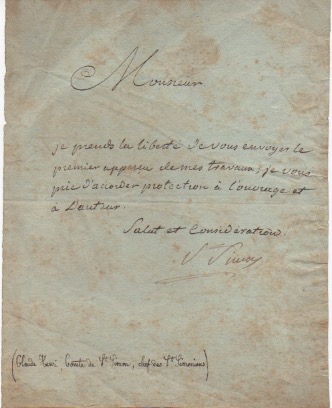 Monsieur
je prends la liberté de vous envoyer le
premier apperçu de mes travaux; je vous
prie d'accorder protection à l'ouvrage et
à L'auteur.
Salut et Considération
St Simon
(Claude Henri, Comte de St Simon, chef des St Simoniens)